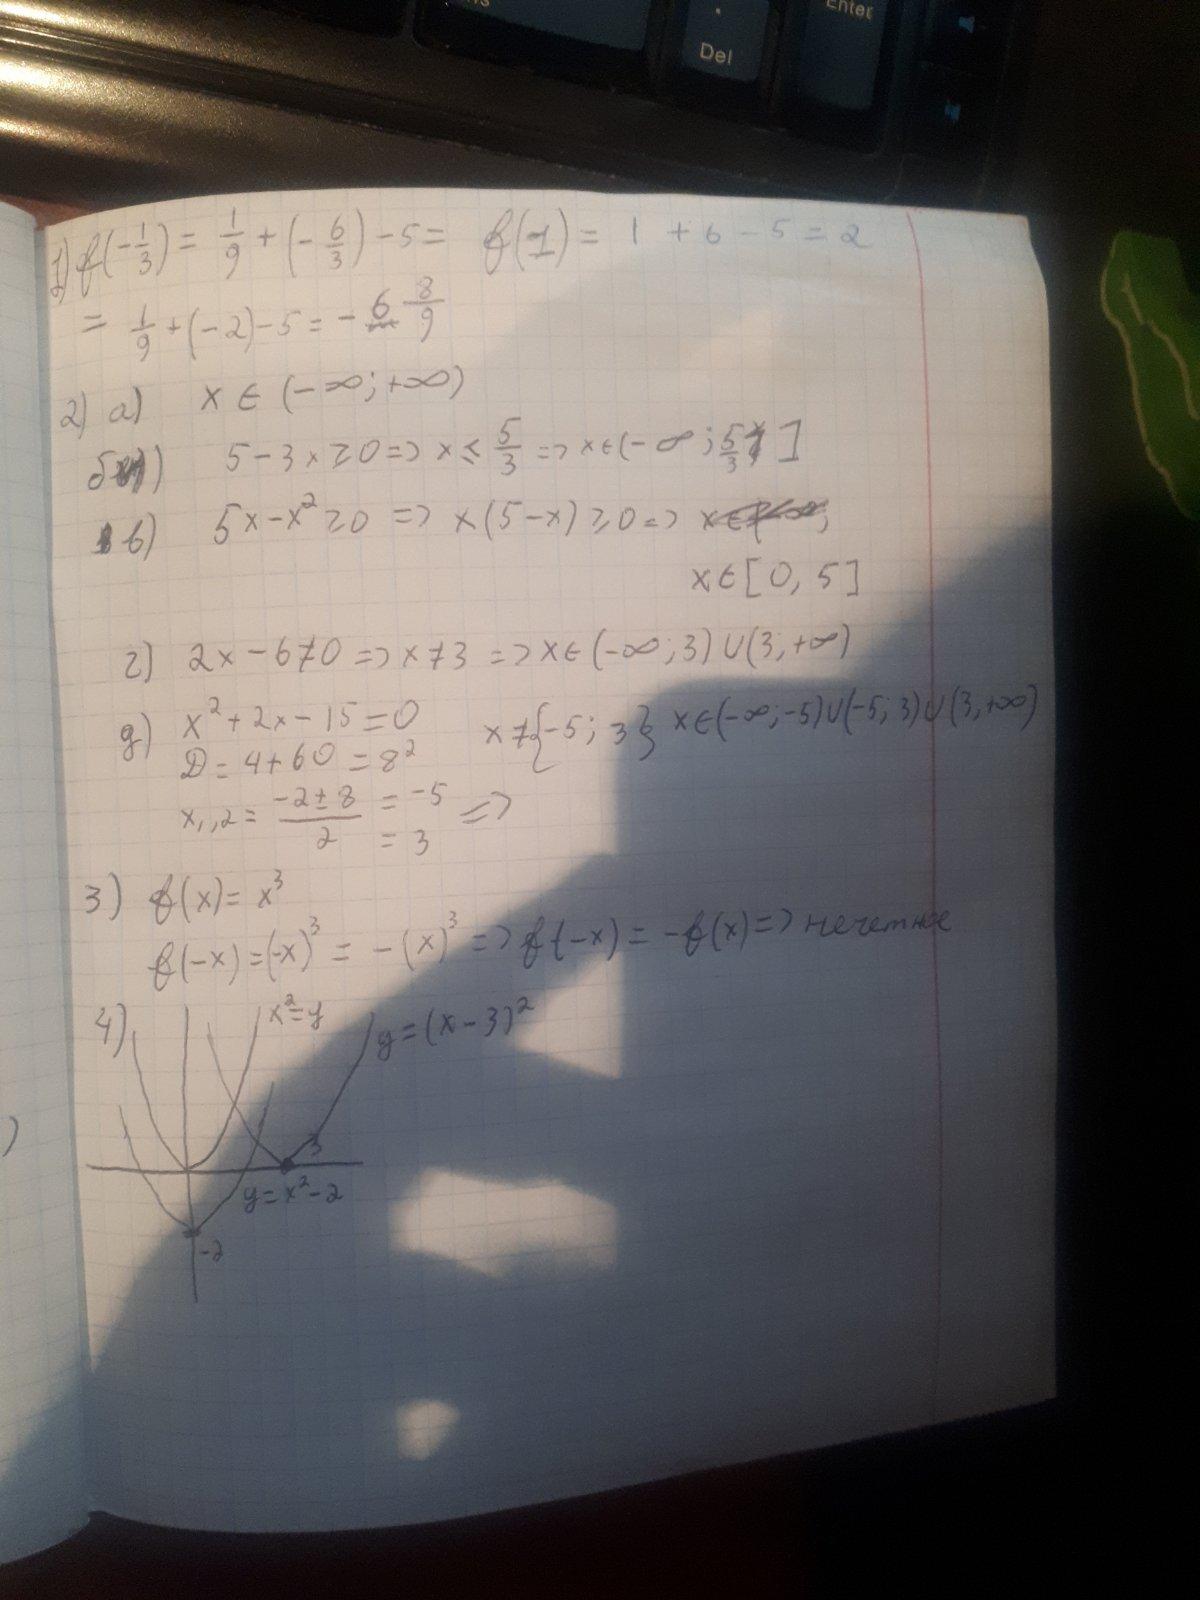 Del
Enter
1) f(-1/3) = 1/9 + (-6/3) - 5 = f(1) = 1 + 6 - 5 = 2
= 1/9 + (-2) - 5 = -6 8/9
2) а) x ∈ (-∞; +∞)
б) 5 - 3x ≥ 0 => x ≤ 5/3 => x ∈ (-∞; 5/3]
в) 5x - x² ≥ 0 => x(5-x) ≥ 0 =>
x ∈ [0, 5]
г) 2x - 6 ≠ 0 => x ≠ 3 => x ∈ (-∞; 3) ∪ (3; +∞)
д) x² + 2x - 15 = 0 x ≠ {-5; 3} x ∈ (-∞; -5) ∪ (-5; 3) ∪ (3; +∞)
D = 4 + 60 = 8²
x₁,₂ = (-2 ± 8)/2 = -5 =>
= 3
3) f(x) = x³
f(-x) = (-x)³ = -(x)³ => f(-x) = -f(x) => нечетное
4) x² = y y = (x - 3)²
3
y = x² - 2
-2